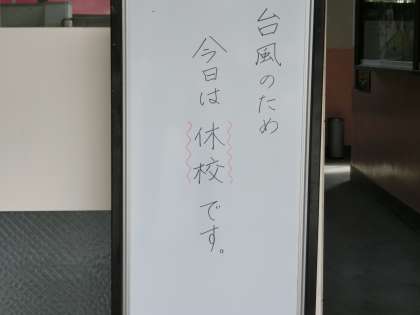 台風のため
今日は休校です。